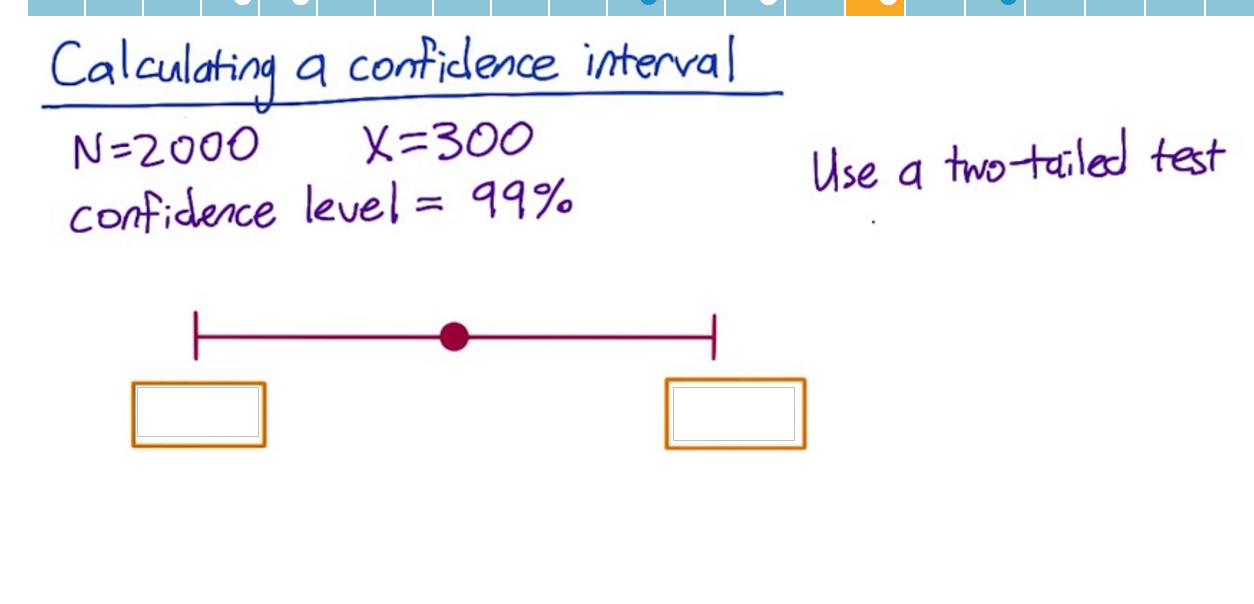 Calculating a confidence interval
N=2000 X=300
confidence level = 99%
Use a two-tailed test